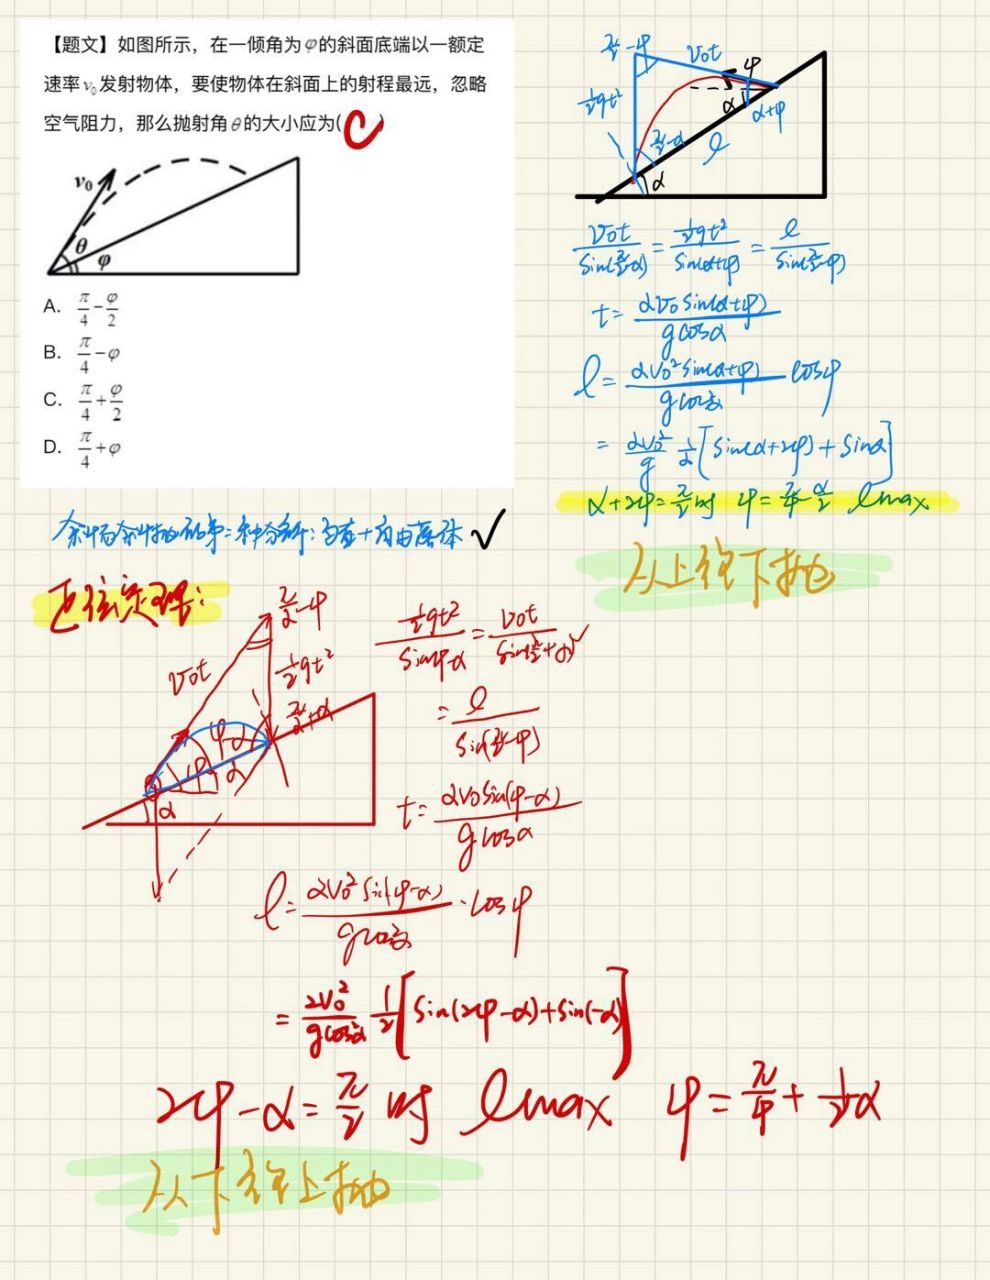 【题文】如图所示，在一倾角为φ的斜面底端以一额定
速率v₀发射物体，要使物体在斜面上的射程最远，忽略
空气阻力，那么抛射角θ的大小应为( C )
v₀
θ
φ
A. π/4 - φ/2
B. π/4 - φ
C. π/4 + φ/2
D. π/4 + φ
π/2 - φ
v₀t
φ
½gt²
α
α+φ
π/2-α
l
α
v₀t/sin(π/2-α) = ½gt²/sin(α+φ) = l/sin(π/2-φ)
t = 2v₀sin(α+φ)/gcosα
l = 2v₀²sin(α+φ)/gcos²α cosφ
= 2v₀²/g ½[sin(α+2φ)+sinα]
α+2φ=π/2时 φ=π/4-α/2 lmax
从上往下抛
斜面斜抛的第二种分解：匀直+自由落体 ✓
正弦定理：
π/2-φ
v₀t
½gt²
π/2+α
φ-α
φ
α
α
½gt²/sin(φ-α) = v₀t/sin(π/2+α) ✓
= l/sin(π/2-φ)
t = 2v₀sin(φ-α)/gcosα
l = 2v₀²sin(φ-α)/gcos²α · cosφ
= 2v₀²/gcos²α ½[sin(2φ-α)+sin(-α)]
2φ-α=π/2时 lmax φ=π/4+½α
从下往上抛